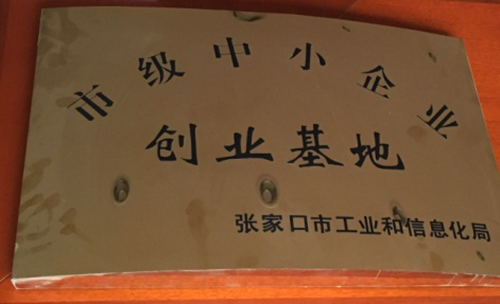 市级中小企业
创业基地
张家口市工业和信息化局